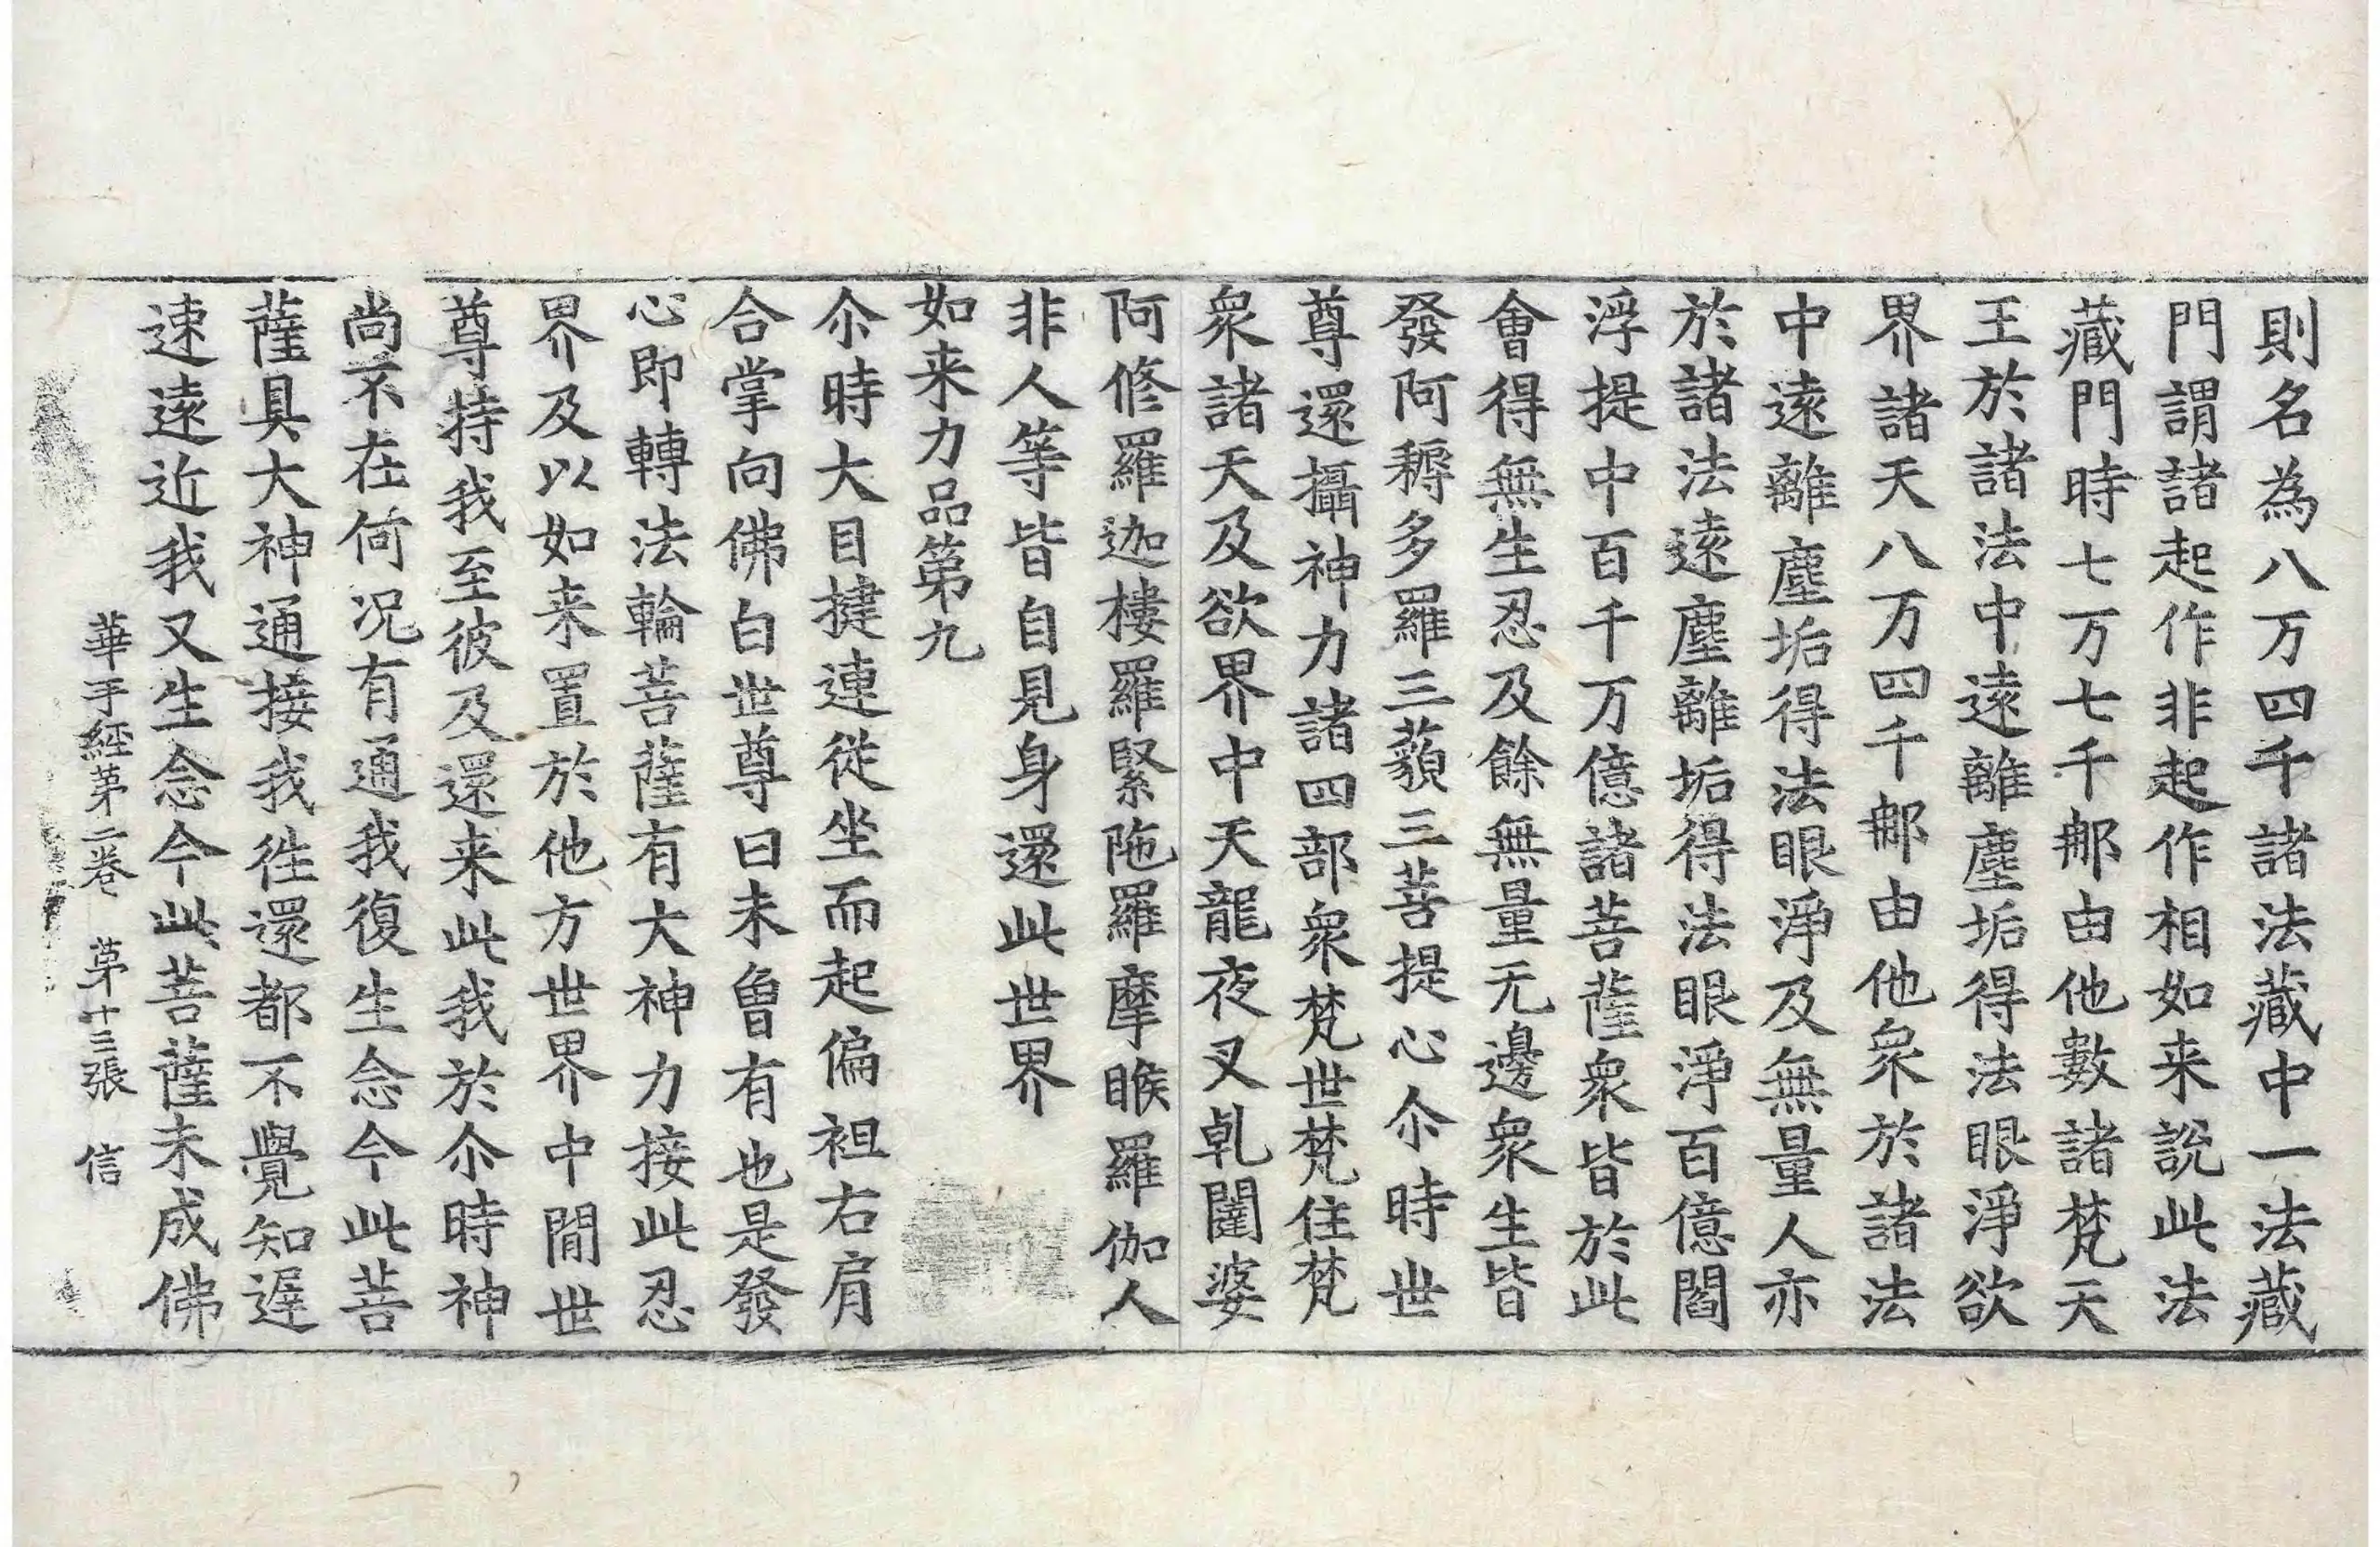 則名為八万四千諸法藏中一法藏
門謂諸起作非起作相如来說此法
藏門時七万七千那由他數諸梵天
王於諸法中遠離塵垢得法眼淨欲
界諸天八万四千那由他衆於諸法
中遠離塵垢得法眼淨及無量人亦
於諸法遠塵離垢得法眼淨百億閻
浮提中百千万億諸菩薩衆皆於此
會得無生忍及餘無量无邊衆生皆
發阿耨多羅三藐三菩提心尒時世
尊還攝神力諸四部衆梵世梵住梵
衆諸天及欲界中天龍夜叉乹闥婆
阿修羅迦樓羅緊陁羅摩睺羅伽人
非人等皆自見身還此世界
如来力品第九
尒時大目揵連從坐而起偏袒右肩
合掌向佛白世尊曰未曾有也是發
心即轉法輪菩薩有大神力接此忍
界及以如来置於他方世界中間世
尊持我至彼及還来此我於尒時神
尚不在何况有通我復生念今此菩
薩具大神通接我往還都不覺知遲
速遠近我又生念今此菩薩未成佛
華手經第二卷 第十三張 信